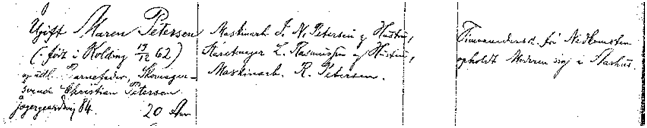 Ugift Maren Petersen
(født i Kolding 19/12 62)
udl. Barnefader, Skomager-
svend Christian Petersen
Jægergaardsvej 84. 20 Aar
Maskinarb. J. N. Petersen og Hustru,
L. Rasmussen og Hustru,
Maskinarb. R. Petersen.
Timaanedersd. før Nedkomsten
opholdt Moderen sig i Aarhus.